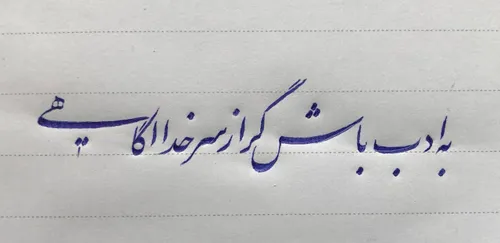 به ادب باش گر از سر خدا آگاهی